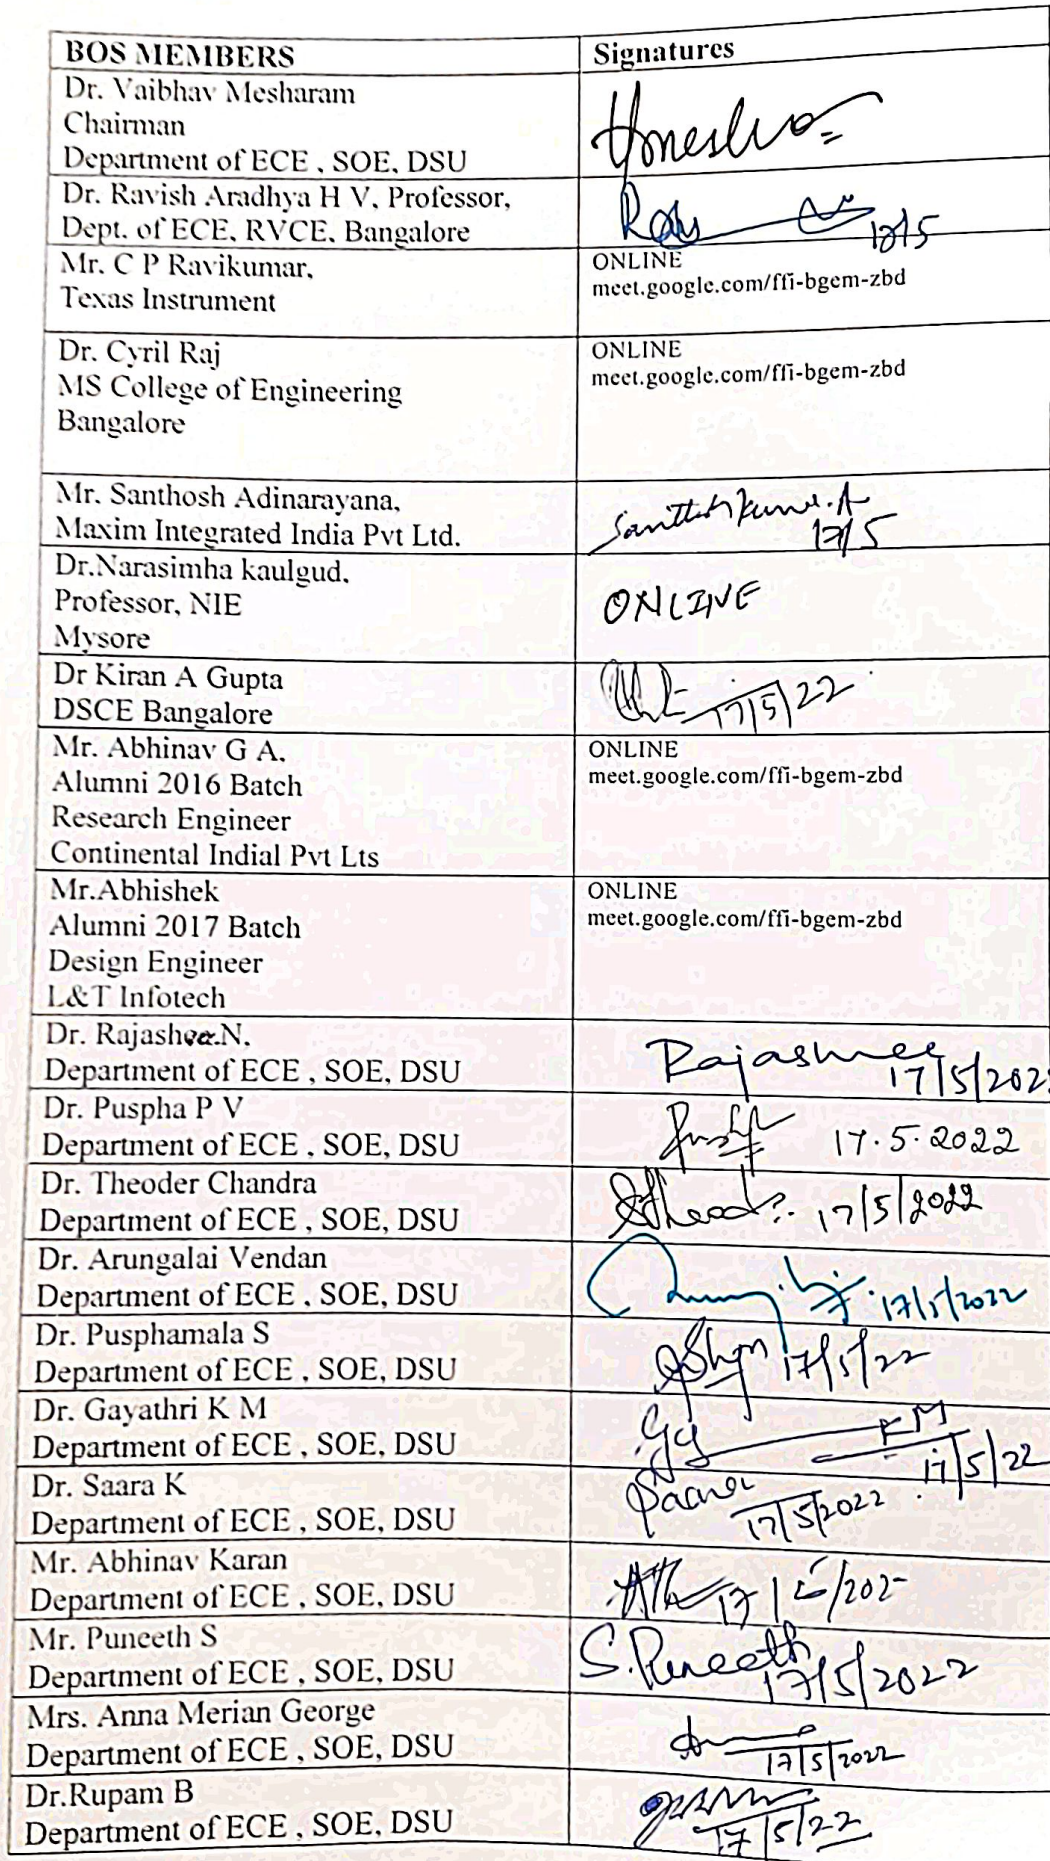 BOS MEMBERS
Signatures
Dr. Vaibhav Mesharam
Chairman
Department of ECE , SOE, DSU
Dr. Ravish Aradhya H V, Professor,
Dept. of ECE, RVCE, Bangalore
Mr. C P Ravikumar,
Texas Instrument
ONLINE
meet.google.com/ffi-bgem-zbd
Dr. Cyril Raj
MS College of Engineering
Bangalore
ONLINE
meet.google.com/ffi-bgem-zbd
Mr. Santhosh Adinarayana,
Maxim Integrated India Pvt Ltd.
Santhosh Kumar.A
17/5
Dr.Narasimha kaulgud,
Professor, NIE
Mysore
ONLINE
Dr Kiran A Gupta
DSCE Bangalore
17/5/22
Mr. Abhinav G A,
Alumni 2016 Batch
Research Engineer
Continental Indial Pvt Lts
ONLINE
meet.google.com/ffi-bgem-zbd
Mr.Abhishek
Alumni 2017 Batch
Design Engineer
L&T Infotech
ONLINE
meet.google.com/ffi-bgem-zbd
Dr. Rajashree.N,
Department of ECE , SOE, DSU
Rajashree
17/5/202
Dr. Puspha P V
Department of ECE , SOE, DSU
17.5.2022
Dr. Theoder Chandra
Department of ECE , SOE, DSU
17/5/2022
Dr. Arungalai Vendan
Department of ECE , SOE, DSU
17/5/2022
Dr. Pusphamala S
Department of ECE , SOE, DSU
17/5/22
Dr. Gayathri K M
Department of ECE , SOE, DSU
KM
17/5/22
Dr. Saara K
Department of ECE , SOE, DSU
Saara
17/5/2022
Mr. Abhinav Karan
Department of ECE , SOE, DSU
17/5/202
Mr. Puneeth S
Department of ECE , SOE, DSU
S.Puneeth
17/5/2022
Mrs. Anna Merian George
Department of ECE , SOE, DSU
17/5/2022
Dr.Rupam B
Department of ECE , SOE, DSU
17/5/22